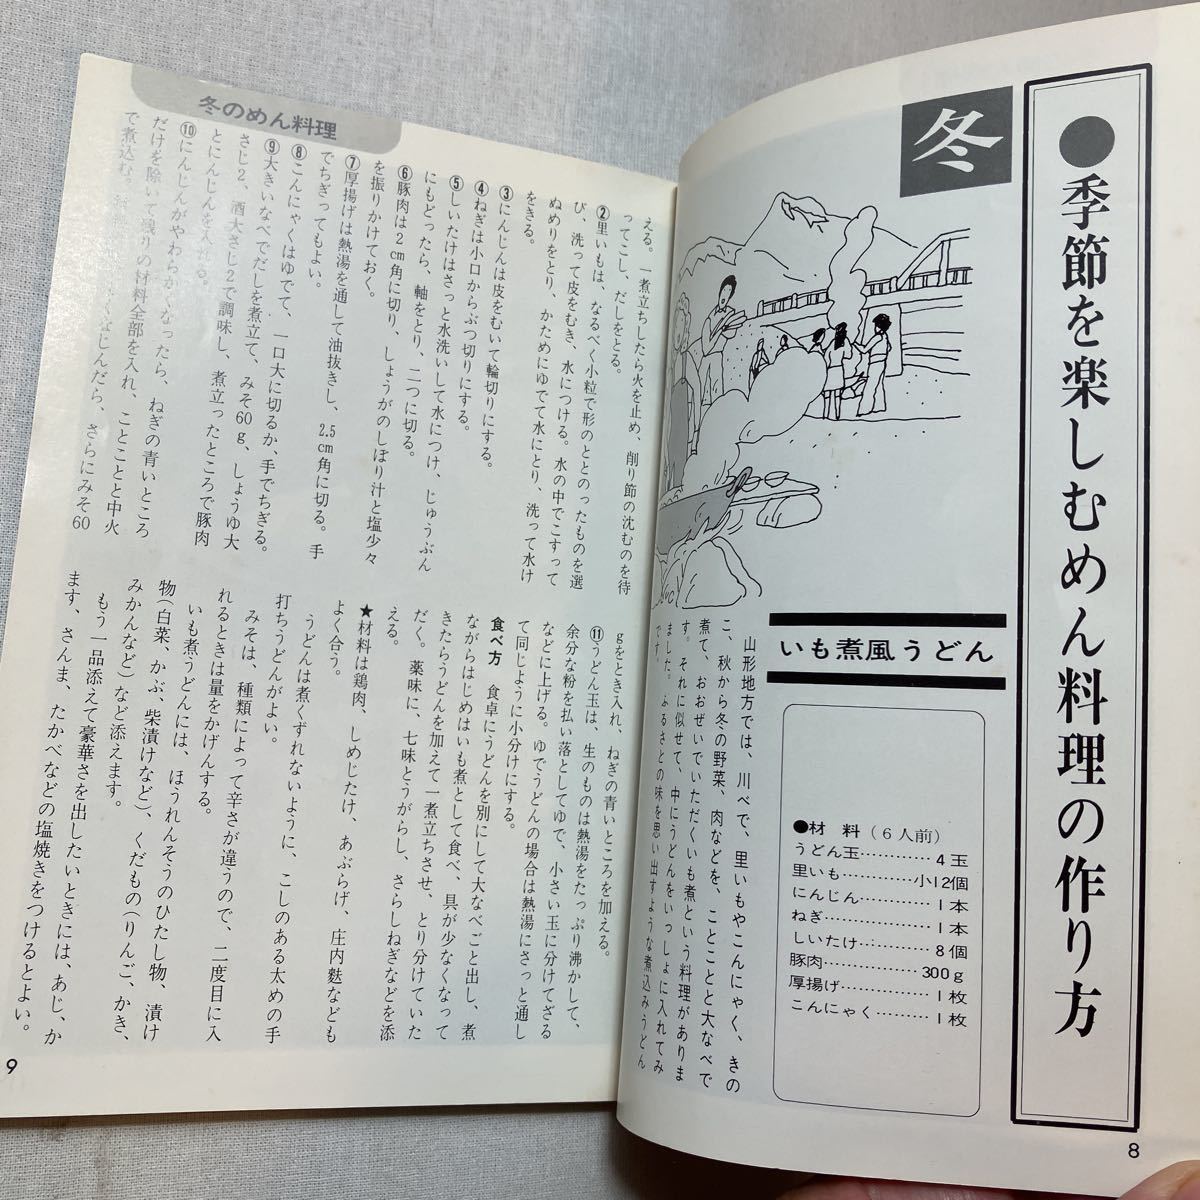 ●季節を楽しむめん料理の作り方
冬
いも煮風うどん
●材 料（6人前）
うどん玉…………4玉
里いも…………小12個
にんじん…………1本
ねぎ…………1本
しいたけ…………8個
豚肉…………300g
厚揚げ…………1枚
こんにゃく…………1枚
山形地方では、川べで、里いもやこんにゃく、きの
こ、秋から冬の野菜、肉などを、ことことと大なべで
煮て、おおぜいでいただくいも煮という料理がありま
す。それに似せて、中にうどんをいっしょに入れてみ
ました。ふるさとの味を思い出すような煮込みうどん
です。
8
冬のめん料理
える。一煮立ちしたら火を止め、削り節の沈むのを待
ってこし、だしをとる。
②里いもは、なるべく小粒で形のととのったものを選
び、洗って皮をむき、水につける。水の中でこすって
ぬめりをとり、かためにゆでて水にとり、洗って水け
をきる。
③にんじんは皮をむいて輪切りにする。
④ねぎは小口からぶつ切りにする。
⑤しいたけはさっと水洗いして水につけ、じゅうぶん
にもどったら、軸をとり、二つに切る。
⑥豚肉は2cm角に切り、しょうがのしぼり汁と塩少々
を振りかけておく。
⑦厚揚げは熱湯を通して油抜きし、2.5cm角に切る。手
でちぎってもよい。
⑧こんにゃくはゆでて、一口大に切るか、手でちぎる。
⑨大きいなべでだしを煮立て、みそ60g、しょうゆ大
さじ2、酒大さじ2で調味し、煮立ったところで豚肉
とにんじんを入れる。
⑩にんじんがやわらかくなったら、ねぎの青いところ
だけを除いて残りの材料全部を入れ、ことことと中火
で煮込む。くなじんだら、さらにみそ60
gをとき入れ、ねぎの青いところを加える。
⑪うどん玉は、生のものは熱湯をたっぷり沸かして、
余分な粉を払い落としてゆで、小さい玉に分けてざる
などに上げる。ゆでうどんの場合は熱湯にさっと通し
て同じように小分けにする。
食べ方 食卓にうどんを別にして大なべごと出し、煮
ながらはじめはいも煮として食べ、具が少なくなって
きたらうどんを加えて一煮立ちさせ、とり分けていた
だく。薬味に、七味とうがらし、さらしねぎなどを添
える。
★材料は鶏肉、しめじたけ、あぶらげ、庄内麩なども
よく合う。
うどんは煮くずれないように、こしのある太めの手
打ちうどんがよい。
みそは、種類によって辛さが違うので、二度目に入
れるときは量をかげんする。
いも煮うどんには、ほうれんそうのひたし物、漬け
物（白菜、かぶ、柴漬けなど）、くだもの（りんご、かき、
みかんなど）など添えます。
もう一品添えて豪華さを出したいときには、あじ、か
ます、さんま、たかべなどの塩焼きをつけるとよい。
9